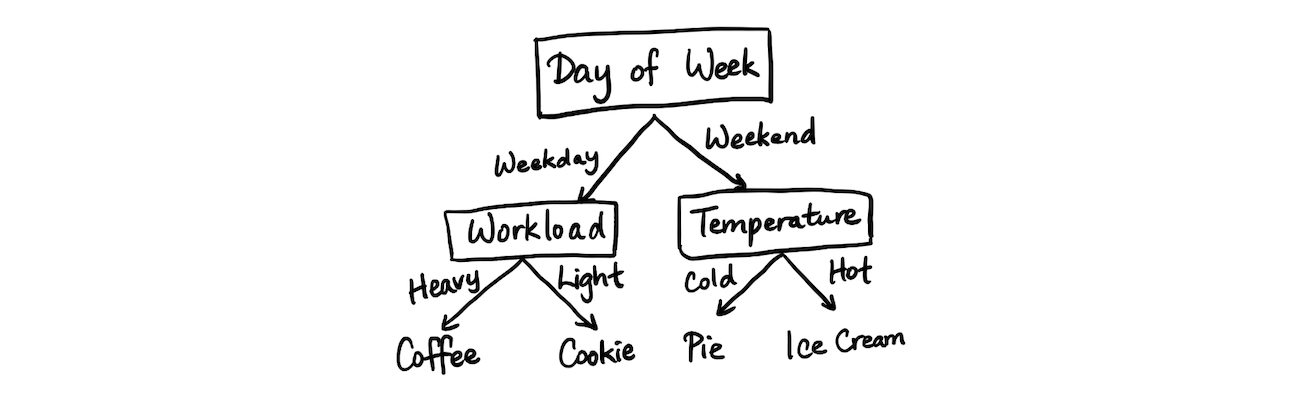 Day of Week
Weekday
Weekend
Workload
Temperature
Heavy
Light
Cold
Hot
Coffee
Cookie
Pie
Ice Cream